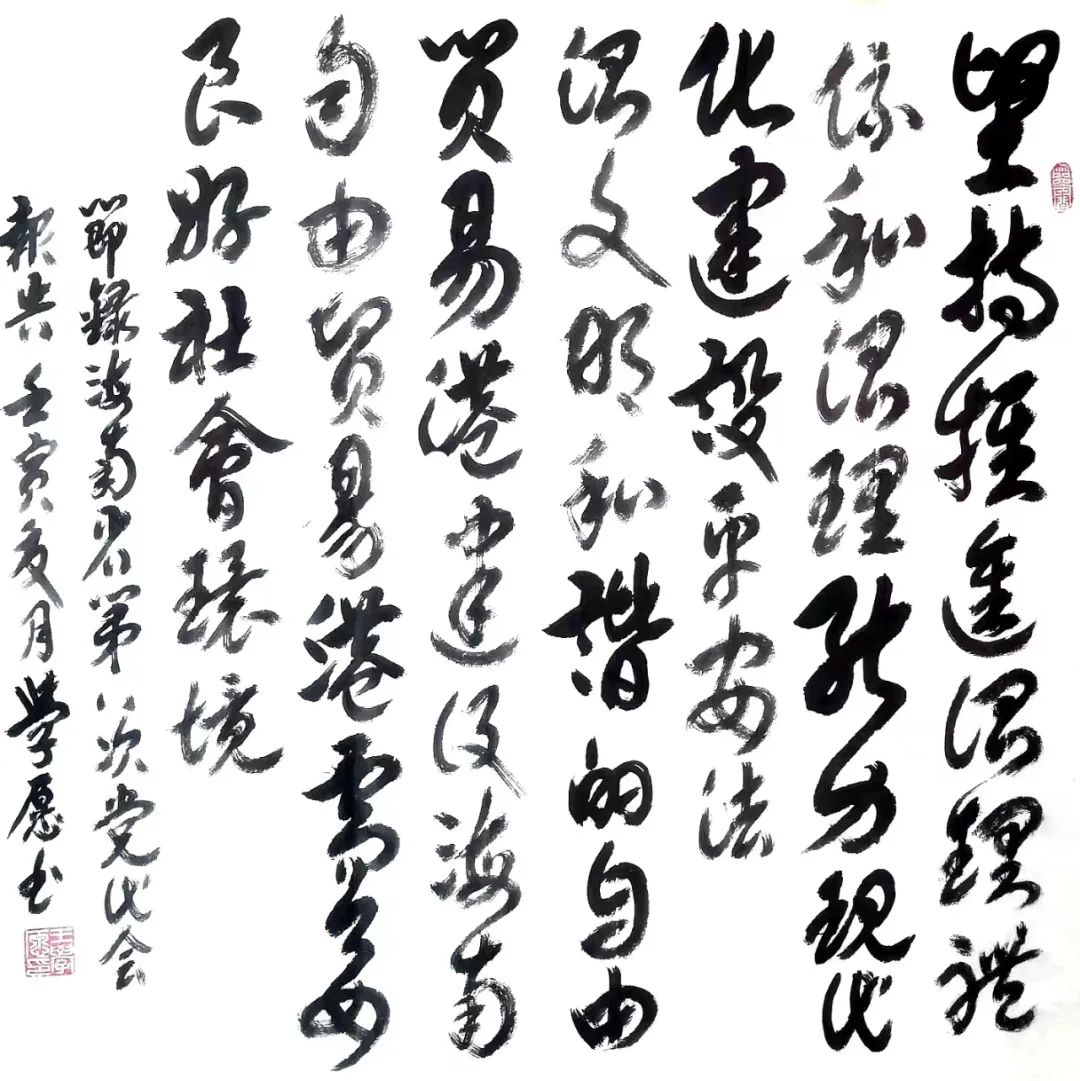 坚持推进治理體
係和治理能力现代
化建设平安法
治文明和諧的自由
贸易港建设海南
自由贸易港需要
良好社會環境
節録海南省第八次党代会
報告壬寅夏月學愿书